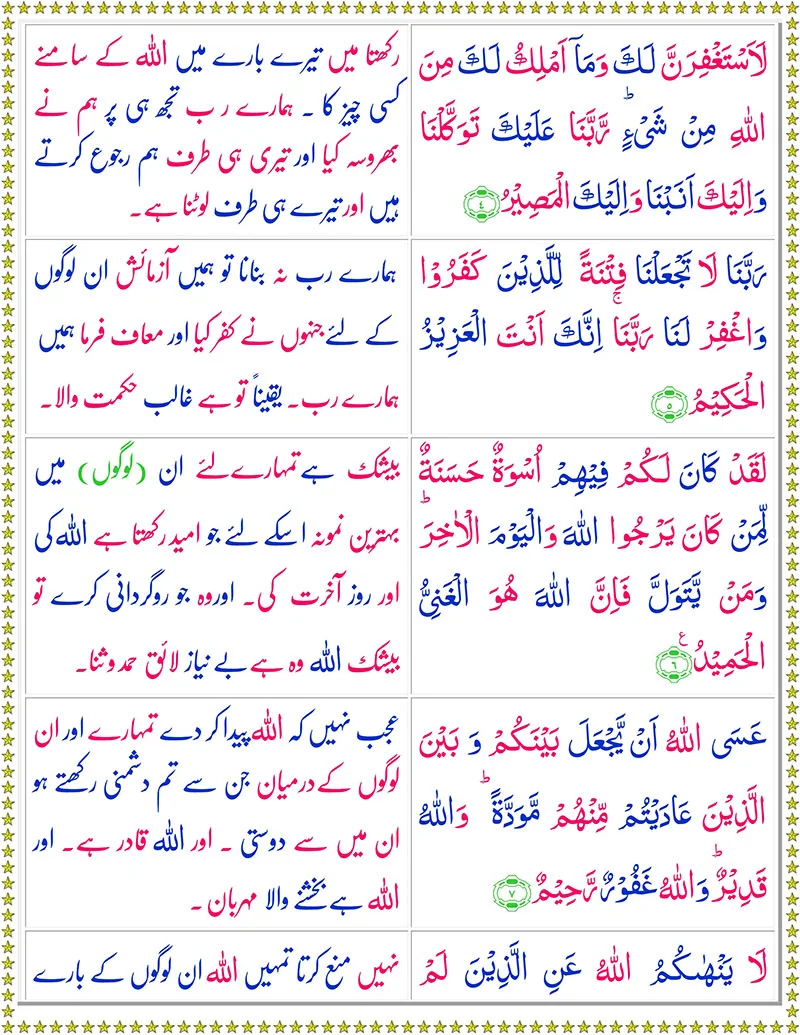 لَاَسْتَغْفِرَنَّ لَكَ وَمَآ اَمْلِكُ لَكَ مِنَ
اللّٰهِ مِنْ شَىْءٍ ؕ رَّبَّنَا عَلَيْكَ تَوَكَّلْنَا
وَاِلَيْكَ اَنَبْنَا وَاِلَيْكَ الْمَصِيْرُ ۴
رکھتا میں تیرے بارے میں اللہ کے سامنے
کسی چیز کا ۔ ہمارے رب تجھ ہی پر ہم نے
بھروسہ کیا اور تیری ہی طرف ہم رجوع کرتے
ہیں اور تیرے ہی طرف لوٹنا ہے۔
رَبَّنَا لَا تَجْعَلْنَا فِتْنَةً لِّلَّذِيْنَ كَفَرُوْا
وَاغْفِرْ لَنَا رَبَّنَا ۚ اِنَّكَ اَنْتَ الْعَزِيْزُ
الْحَكِيْمُ ۵
ہمارے رب نہ بنانا تو ہمیں آزمائش ان لوگوں
کے لئے جنہوں نے کفر کیا اور معاف فرما ہمیں
ہمارے رب۔ یقیناً تو ہے غالب حکمت والا۔
لَقَدْ كَانَ لَكُمْ فِيْهِمْ اُسْوَةٌ حَسَنَةٌ
لِّمَنْ كَانَ يَرْجُوا اللّٰهَ وَالْيَوْمَ الْاٰخِرَ ؕ
وَمَنْ يَّتَوَلَّ فَاِنَّ اللّٰهَ هُوَ الْغَنِىُّ
الْحَمِيْدُ ۶ ع
بیشک ہے تمہارے لئے ان (لوگوں) میں
بہترین نمونہ اسکے لئے جو امید رکھتا ہے اللہ کی
اور روز آخرت کی۔ اور وہ جو روگردانی کرے تو
بیشک اللہ وہ ہے بے نیاز لائق حمد وثنا۔
عَسَى اللّٰهُ اَنْ يَّجْعَلَ بَيْنَكُمْ وَ بَيْنَ
الَّذِيْنَ عَادَيْتُمْ مِّنْهُمْ مَّوَدَّةً ؕ وَاللّٰهُ
قَدِيْرٌ ؕ وَاللّٰهُ غَفُوْرٌ رَّحِيْمٌ ۷
عجب نہیں کہ اللہ پیدا کر دے تمہارے اور ان
لوگوں کے درمیان جن سے تم دشمنی رکھتے ہو
ان میں سے دوستی ۔ اور اللہ قادر ہے۔ اور
اللہ ہے بخشنے والا مہربان ۔
لَا يَنْهٰىكُمُ اللّٰهُ عَنِ الَّذِيْنَ لَمْ
نہیں منع کرتا تمہیں اللہ ان لوگوں کے بارے